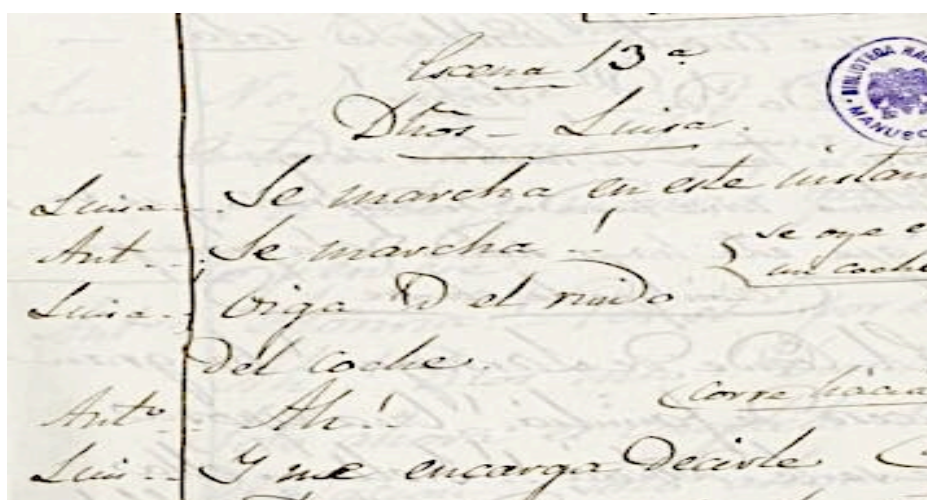 Escena 13ª
Dhos - Luisa.
BIBLIOTECA NAC
MANUSC
Luisa - Se marcha en este instan
Ant. - Se marcha! (se oye e
un coche
Luisa - Oiga V el ruido
del coche.
Antº - Ah! (corre hácia
Luis - Y me encarga decirle (